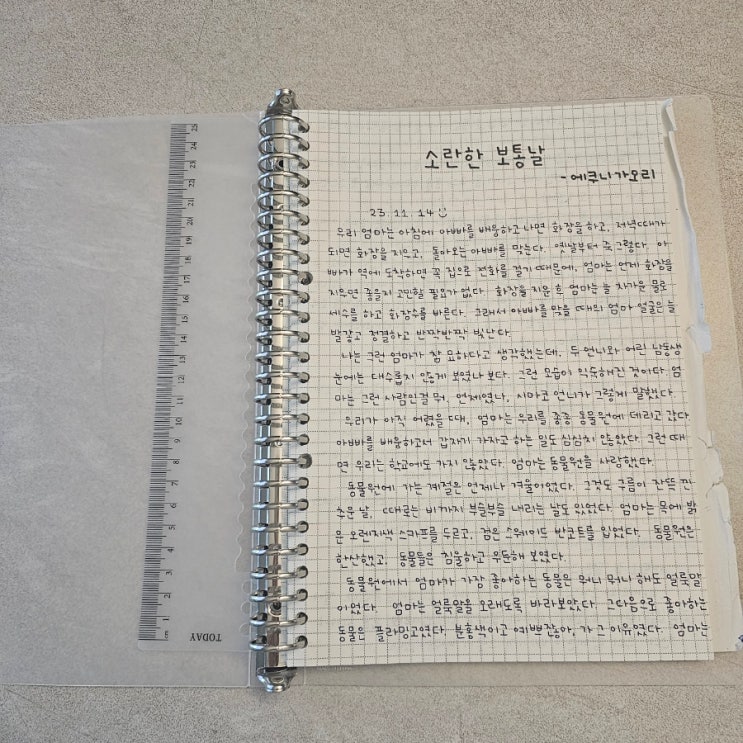 소란한 보통날
- 에쿠니가오리
23. 11. 14
우리 엄마는 아침에 아빠를 배웅하고 나면 화장을 하고, 저녁때가
되면 화장을 지우고, 돌아오는 아빠를 맞는다. 옛날부터 죽 그렇다. 아
빠가 역에 도착하면 꼭 집으로 전화를 걸기 때문에, 엄마는 언제 화장을
지우면 좋을지 고민할 필요가 없다. 화장을 지운 후 엄마는 늘 차가운 물로
세수를 하고 화장수를 바른다. 그래서 아빠를 맞을 때의 엄마 얼굴은 늘
발갛고 정결하고 반짝반짝 빛난다.
나는 그런 엄마가 참 묘하다고 생각했는데, 두 언니와 어린 남동생
눈에는 대수롭지 않게 보였나 보다. 그런 모습이 익숙해진 것이다. 엄
마는 그런 사람인걸 뭐, 언제였나, 시마코 언니가 그렇게 말했다.
우리가 아직 어렸을 때, 엄마는 우리를 종종 동물원에 데리고 갔다.
아빠를 배웅하고서 갑자기 가자고 하는 일도 심심치 않았다. 그런 때
면 우리는 학교에도 가지 않았다. 엄마는 동물원을 사랑했다.
동물원에 가는 계절은 언제나 겨울이었다. 그것도 구름이 잔뜩 낀
추운 날, 때로는 비까지 부슬부슬 내리는 날도 있었다. 엄마는 목에 밝
은 오렌지색 스카프를 두르고, 검은 스웨이드 반코트를 입었다. 동물원은
한산했고, 동물들은 침울하고 우둔해 보였다.
동물원에서 엄마가 가장 좋아하는 동물은 뭐니 뭐니 해도 얼룩말
이었다. 엄마는 얼룩말을 오래도록 바라보았다. 그다음으로 좋아하는
동물은 플라밍고였다. 분홍색이고 예쁘잖아, 가 그 이유였다. 엄마는
cm 1 2 3 4 5 6 7 8 9 10 11 12 13 14 15 16 17 18 19 20 21 22 23 24 25
TODAY